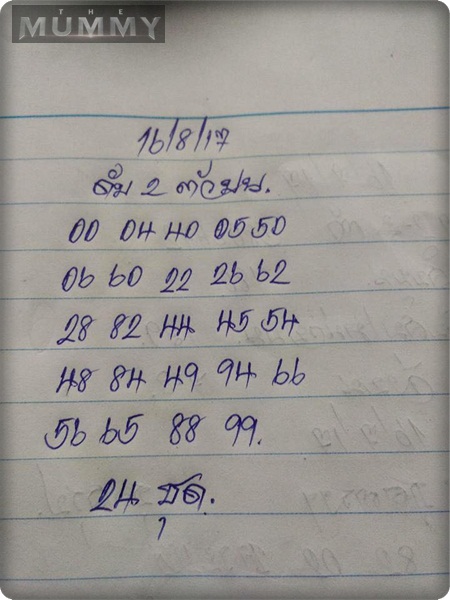 THE
MUMMY
16/8/17
ดับ 2 ตัวบน.
00 04 40 05 50
06 60 22 26 62
28 82 44 45 54
48 84 49 94 66
56 65 88 99.
24 ชุด.